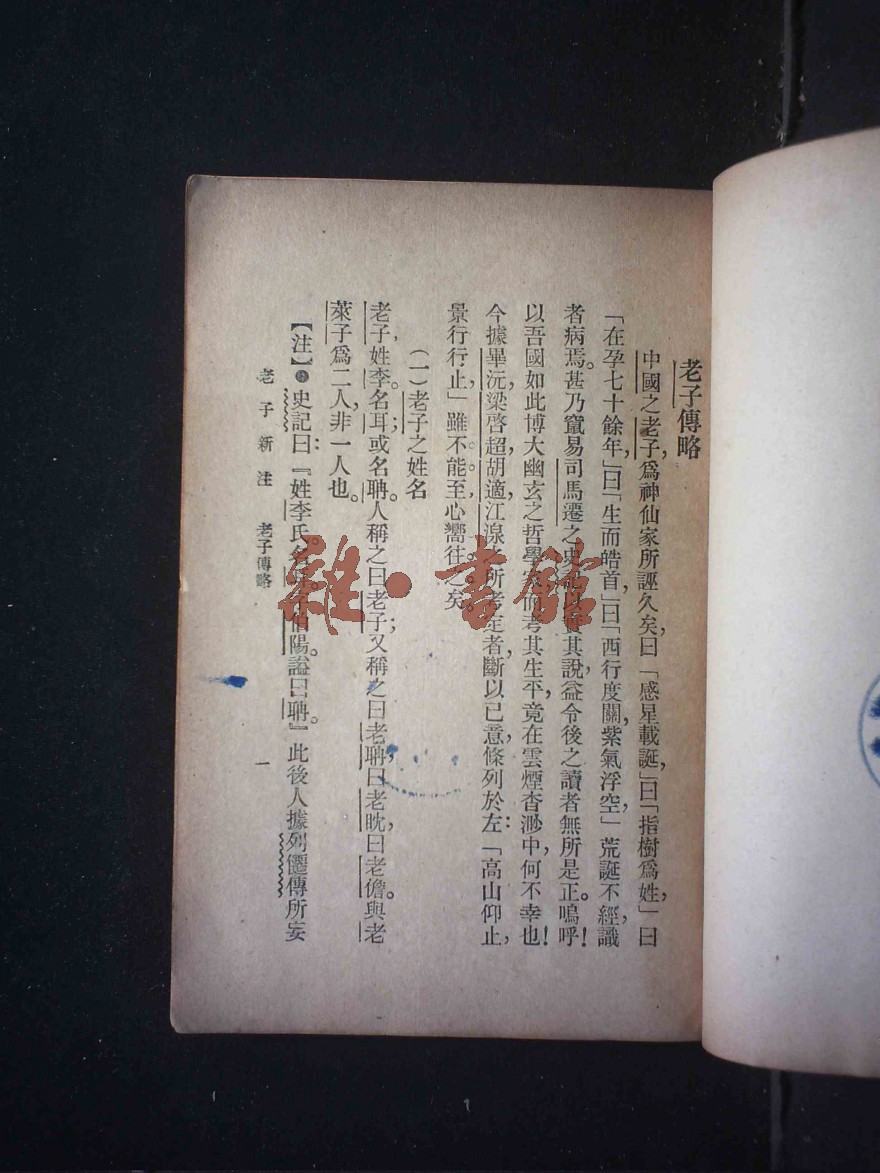 老子傳略
中國之老子，爲神仙家所誣久矣，曰「感星載誕」，曰「指樹爲姓」，曰
「在孕七十餘年」，曰「生而皓首」，曰「西行度關，紫氣浮空」，荒誕不經，識
者病焉。甚乃竄易司馬遷之史以實其說，益令後之讀者無所是正。嗚呼！
以吾國如此博大幽玄之哲學家，而考其生平，竟在雲煙杳渺中，何不幸也！
今據畢沅，梁啓超，胡適，江瑔所考定者，斷以已意，條列於左：「高山仰止，
景行行止」，雖不能至，心嚮往之矣。
（一）老子之姓名
老子，姓李。名耳；或名聃。人稱之曰老子；又稱之曰老聃，曰老耽，曰老儋。與老
萊子爲二人，非一人也。
【注】㊀史記曰：『姓李氏。名耳。字伯陽。謚曰聃。』此後人據列僊傳所妄
老子新注 老子傳略 一
雜·書館